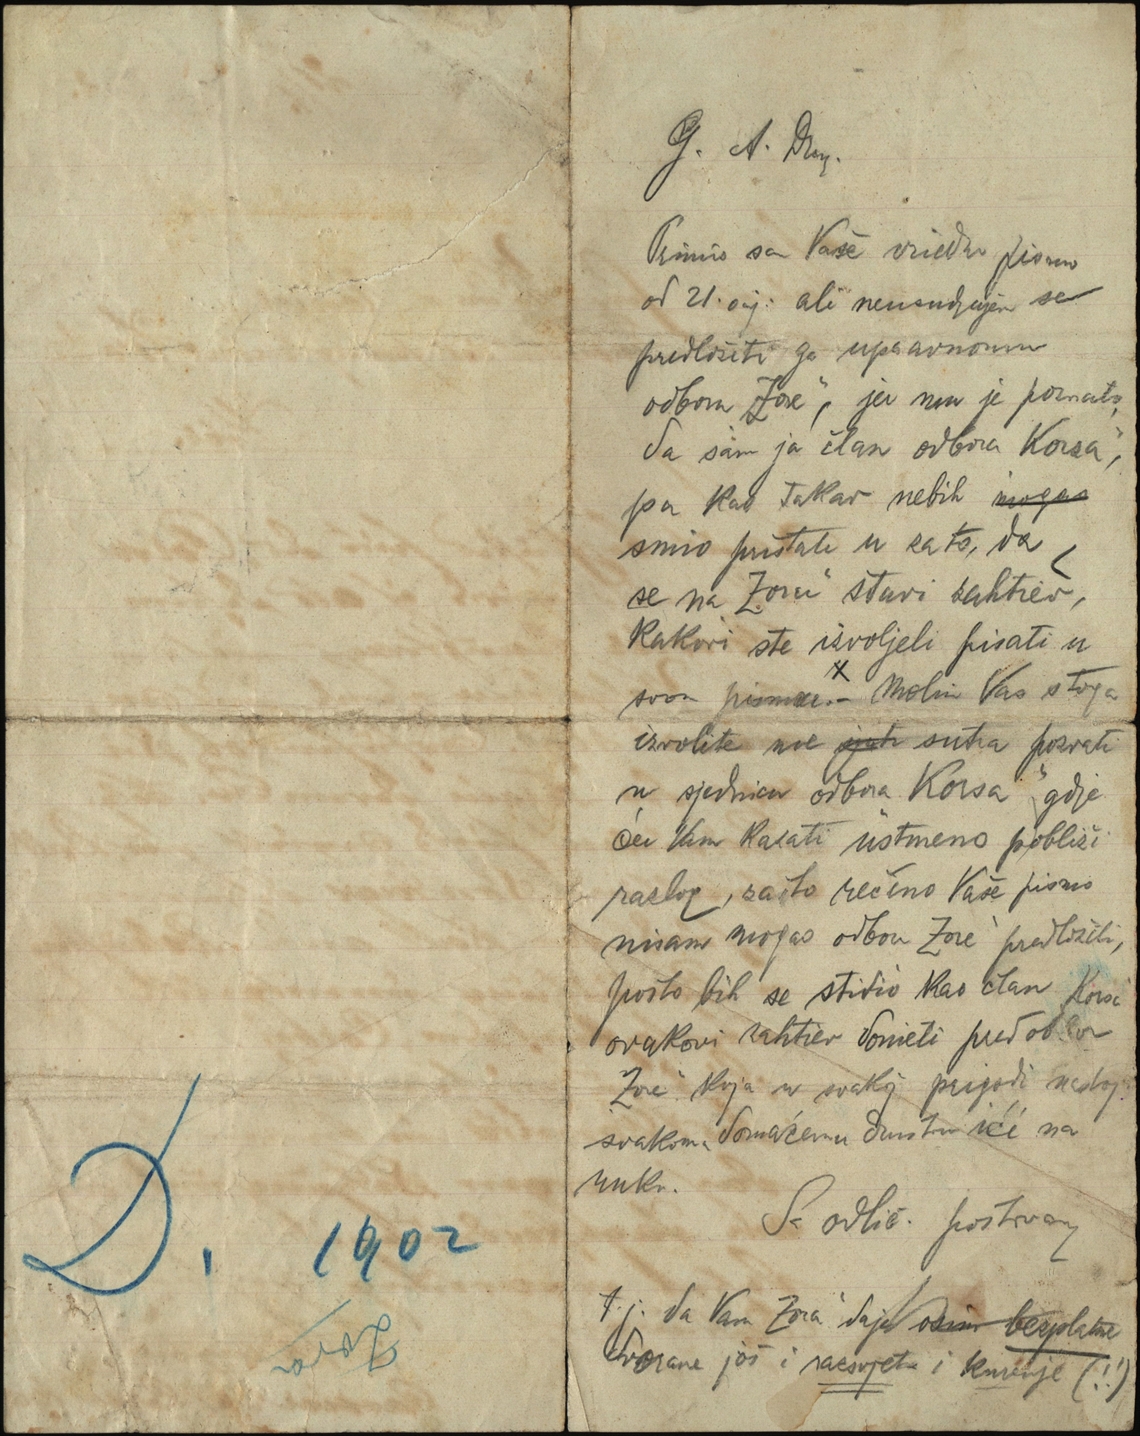 G. A.
Primio sam Vaše vriedno pismo
od 21. ov.j. ali neusudjujem se
predložiti ga upravnomu
odboru Zore", jer mu je poznato,
da sâm ja član odbora Korsa",
pa kao takav nebih mogao
smio pristati u zato, da
se na Zoru" stavi zahtiev,
kakovi ste izvoljeli pisati u
svom pismu.- x Molim Vas stoga
izvolite me sutra pozvati
u sjednicu odbora Korsa" gdje
ću Vam kazati ustmeno pobliži
razlog, zašto rečeno Vaše pismo
nisam mogao odboru Zore" predložiti,
pošto bih se stidio kao član Korsa
ovakovi zahtiev donieti pred odbor
Zore" koja u svakoj prigodi nastoji
svakomu domaćemu družtvu ići na
ruku.
Sa odlič. poštovanj
t.j. da Vam Zora" daje osim bezplatne
dvorane još i razsvjetu i kurenje (!!)
D. 1902
Zora